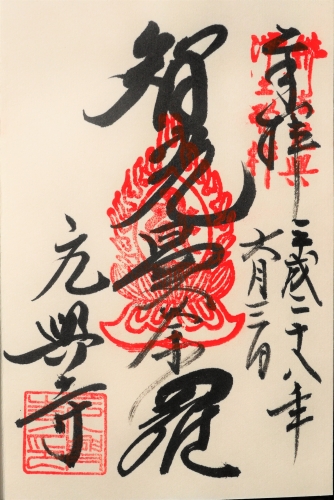 奉拝
平成二十八年
六月三日
智光曼荼羅
元興寺